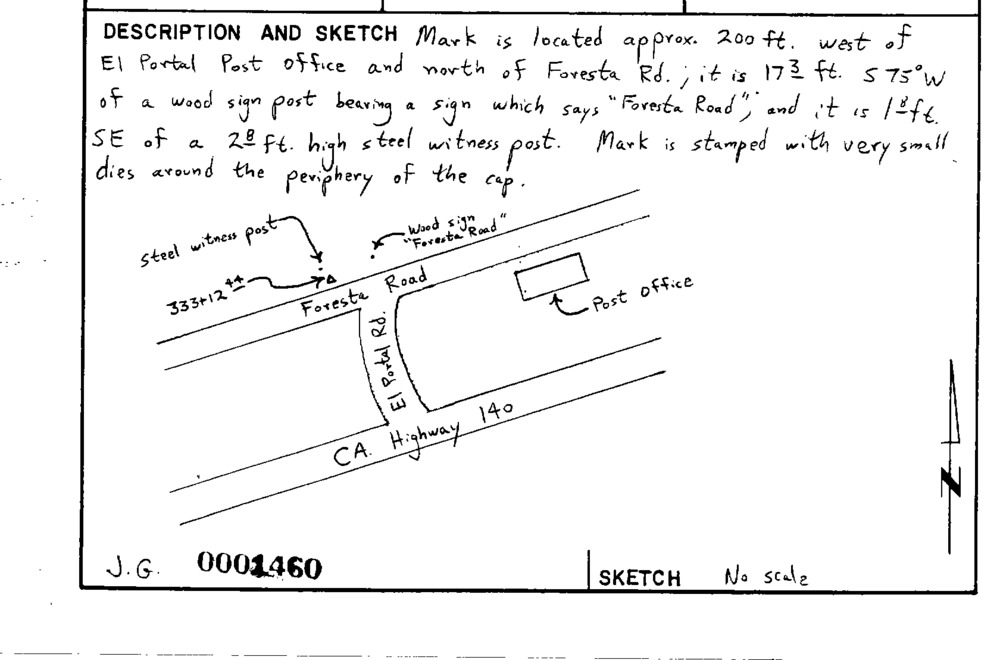 DESCRIPTION AND SKETCH Mark is located approx. 200 ft. west of
El Portal Post office and north of Foresta Rd.; it is 17³ ft. S 75° W
of a wood sign post bearing a sign which says "Foresta Road"; and it is 1⁸ ft.
SE of a 2⁸ ft. high steel witness post. Mark is stamped with very small
dies around the periphery of the cap.
steel witness post
Wood sign
"Foresta Road"
333+12⁴⁴
Foresta Road
Post office
El Portal Rd.
CA. Highway 140
N
J.G. 0001460
SKETCH No scale